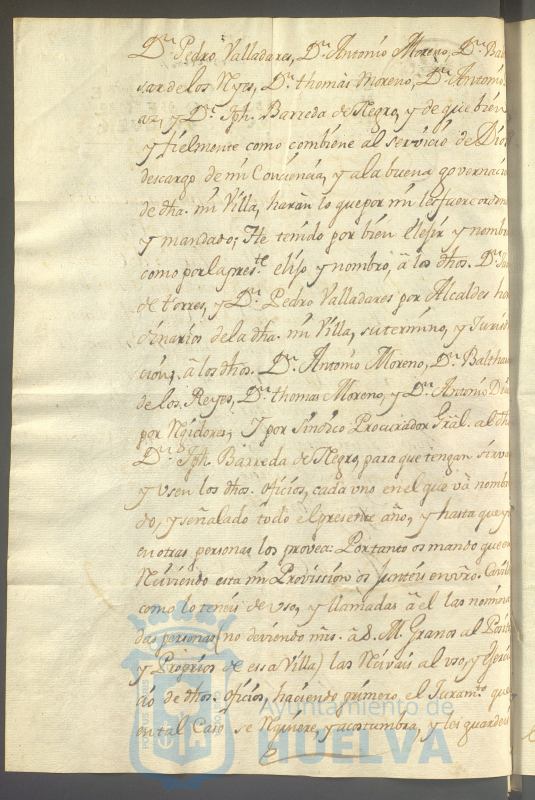 Dn. Pedro Valladares, Dn. Antonio Moreno, Dn. Bal
sar de los Reyes, Dn. thomàs Moreno, Dn. Antonio
az, y Dn. Jph. Barreda de Negro, y de que bien
y fielmente como combiene al servicio de Dios
descargo de mi Conciencia, y a la buena governaciō
de dha. mi Villa, haràn lo que por mi les fuere orden
y mandado; He tenido por bien elejir y nombr
como por la preste. elijo y nombro, à los dhos. Dn.
de torres, y Dn. Pedro Valladares por Alcaldes ho
dinarios de la dha. mi Villa, su termino, y Jurisd
ción; à los dhos. Dn. Antonio Moreno, Dn. Balthas
de los Reyes, Dn. thomas Moreno, y Dn. Antonio Dia
por Rejidores; Y por Sindico Procurador Gràl. al dho
Dn. Jph. Barreda de Negro, para que tengan sirva
y usen los dhos. oficios, cada uno en el que và nombra
do, y señalado todo el presente año, y hasta que yo
en otras personas los provea: Por tanto os mando que en
Reciviendo esta mi Provission os junteis en vro. Cavil
como lo teneis de uso, y llamadas à el las nomina
das personas (no deviendo mrs. à S. M. Granos al Posito
y Proprios de essa Villa) las Recivais al uso, y Exerci
cio de dhos. oficios, haciendo primero el Juramto. que
en tal Caso se Requiere, y acostumbra, y les guardeis
Ayuntamiento de
HUELVA